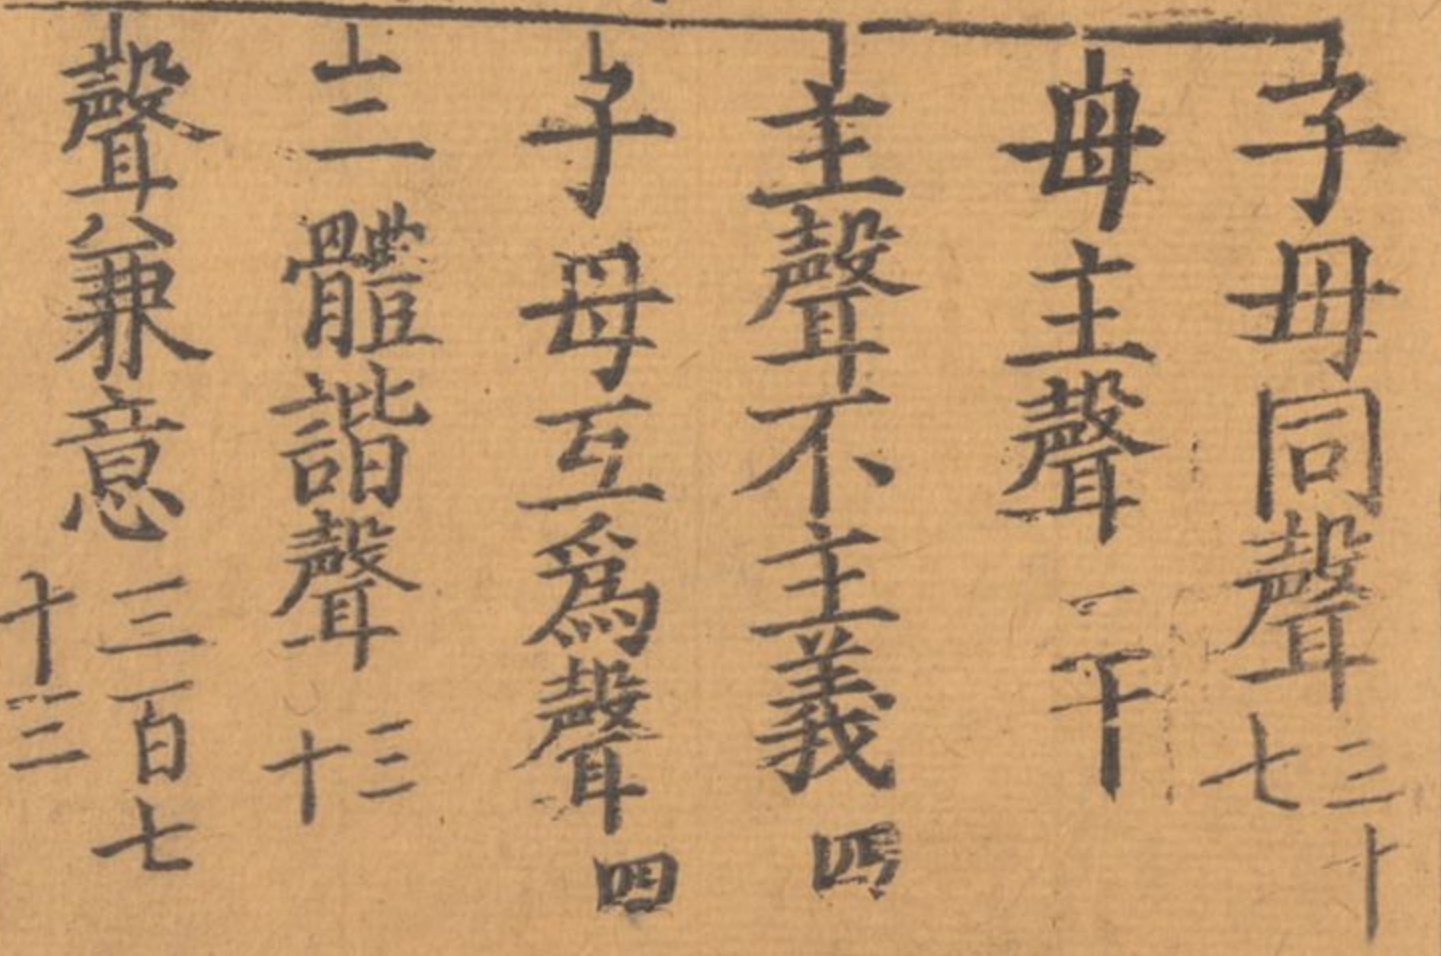 子母同聲三十七
母主聲
主聲不主義四
子母互爲聲四
三體諧聲三十
聲兼意三百七十三